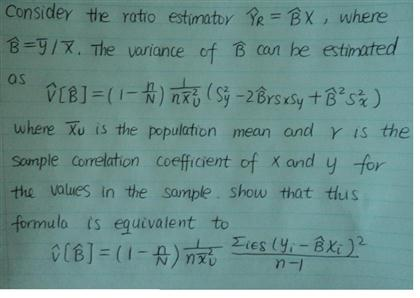 Consider the ratio estimator Ŷ_R = B̂X, where
B̂ = ȳ/x̄. The variance of B̂ can be estimated
as V̂[B̂] = (1 - n/N) 1/(n x̄_U²) (S_y² - 2B̂rs_xs_y + B̂²s_x²)
where x̄_U is the population mean and r is the
sample correlation coefficient of x and y for
the values in the sample. show that this
formula is equivalent to
V̂[B̂] = (1 - n/N) 1/(n x̄_U²) Σ_{i∈S} (y_i - B̂x_i)²/(n-1)